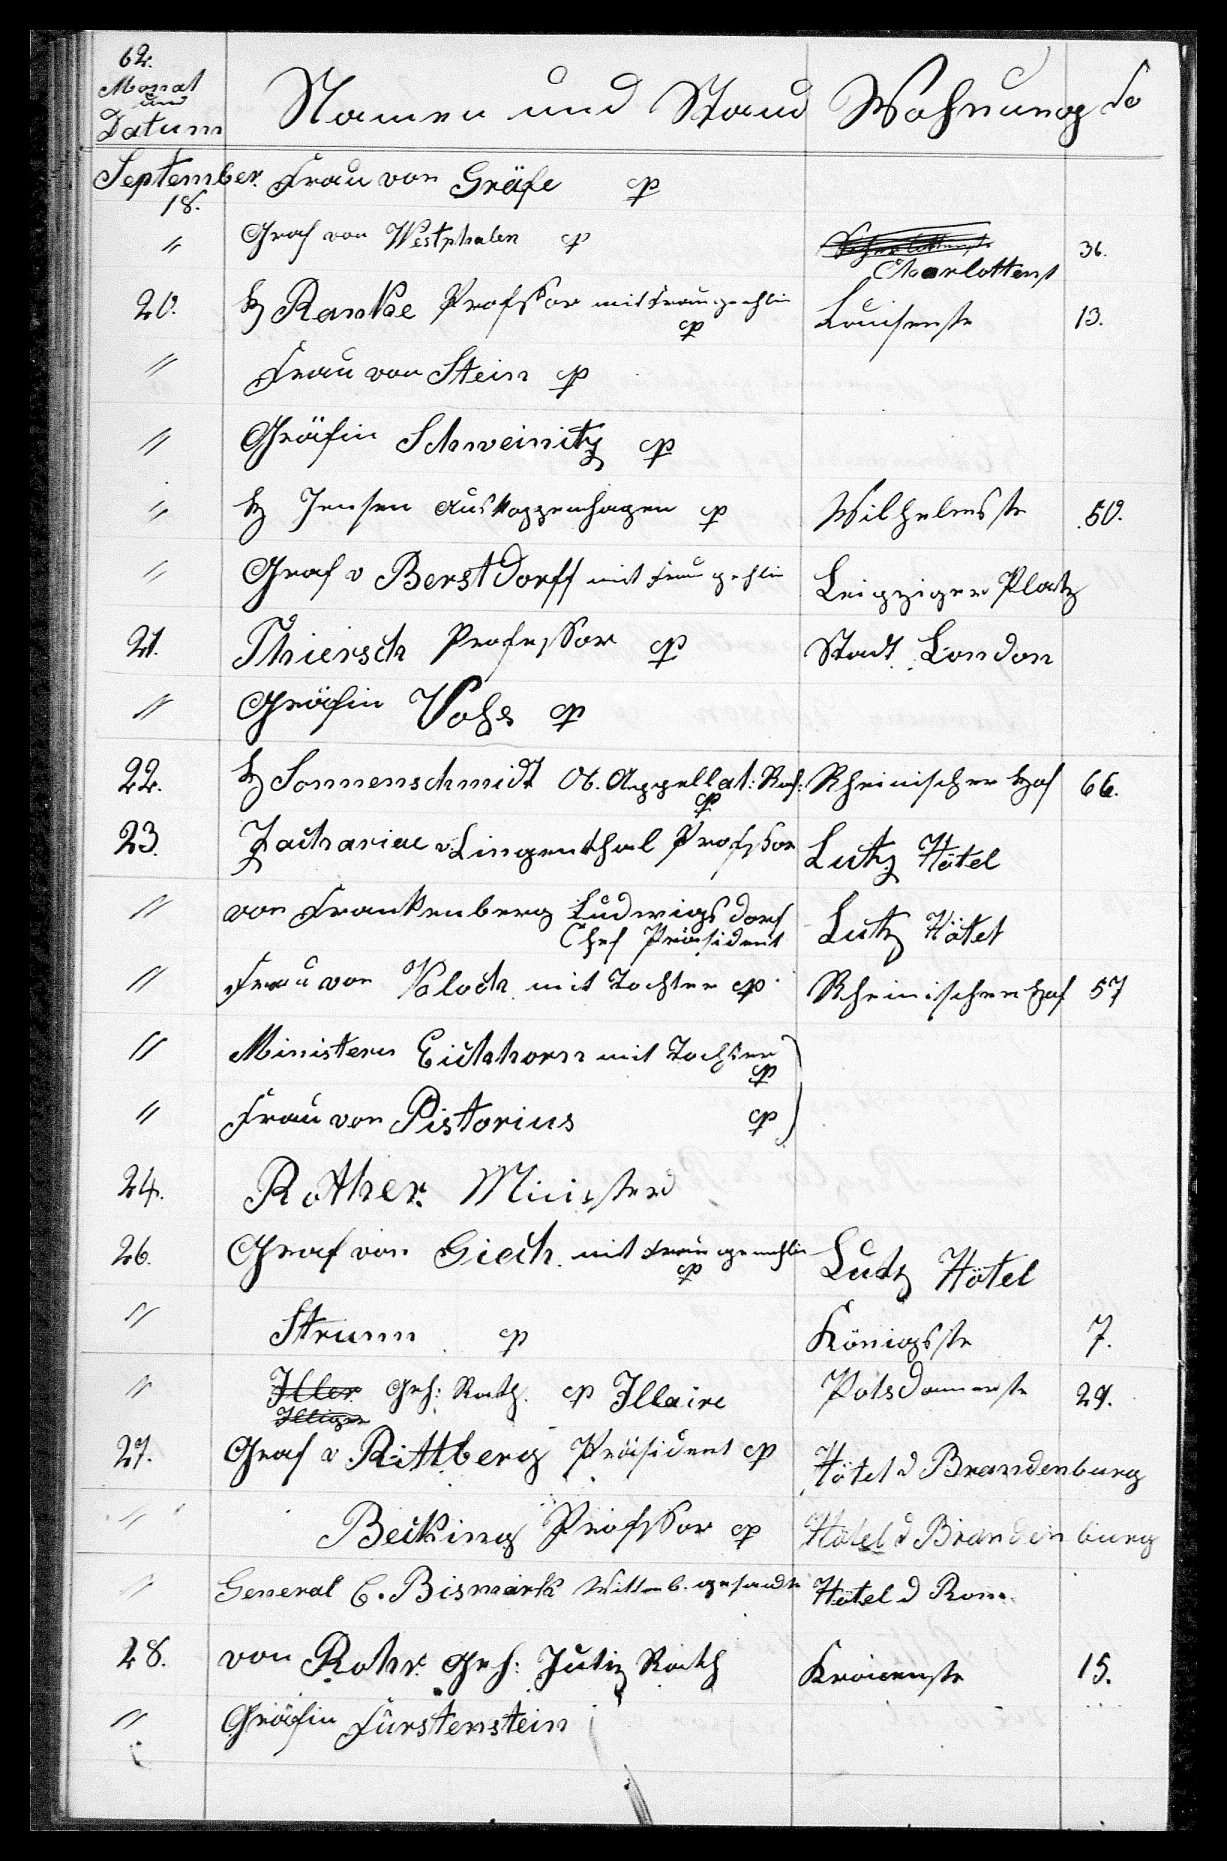 62.
Monat
und
Datum
Namen und Stand Wohnung No
September. Frau von Gräfe cp
18.
" Graf von Westphalen cp 36.
Charlottenst
20. H Ranke Professor mit Frau gemahlin Louisenstr 13.
cp
" Frau von Stein cp
" Gräfin Schweinitz cp
" H Jensen aus Koppenhagen cp Wilhelmsstr 50.
" Graf v Berstdorff mit Frau gehlin Leipziger Platz
21. Thiersch Professor cp Stadt London
" Gräfin Vohs cp
22. H Sonnenschmidt Ob. Appellat: Rath: Rheinischer Hof 66.
cp
23. Zachariae v. Lingenthal Professor Lutz Hôtel
" von Frankenberg Ludwigsdorf Lutz Hôtel
Chef Präsident
" Frau von mit Tochter cp Rheinischer Hof 57
" Ministern Eichhorn mit Tochter
cp
" Frau von Pistorius cp
24. Rother. Minister
26. Graf von Giech mit Frau gemahlin Lutz Hôtel
cp
" Strumm cp Königsstr 7.
" Iller Geh: Rath. cp Illaire Potsdamerstr 29.
Illiger
27. Graf v. Rittberg Präsident cp Hôtel d Brandenburg
" Becking Professor cp Hôtel d Brandenburg
" General C. Bismark Wittemb. gesandte Hôtel d Rom.
28. von Rohr. Geh: Jutiz Rath 15.
" Gräfin Fürstenstein